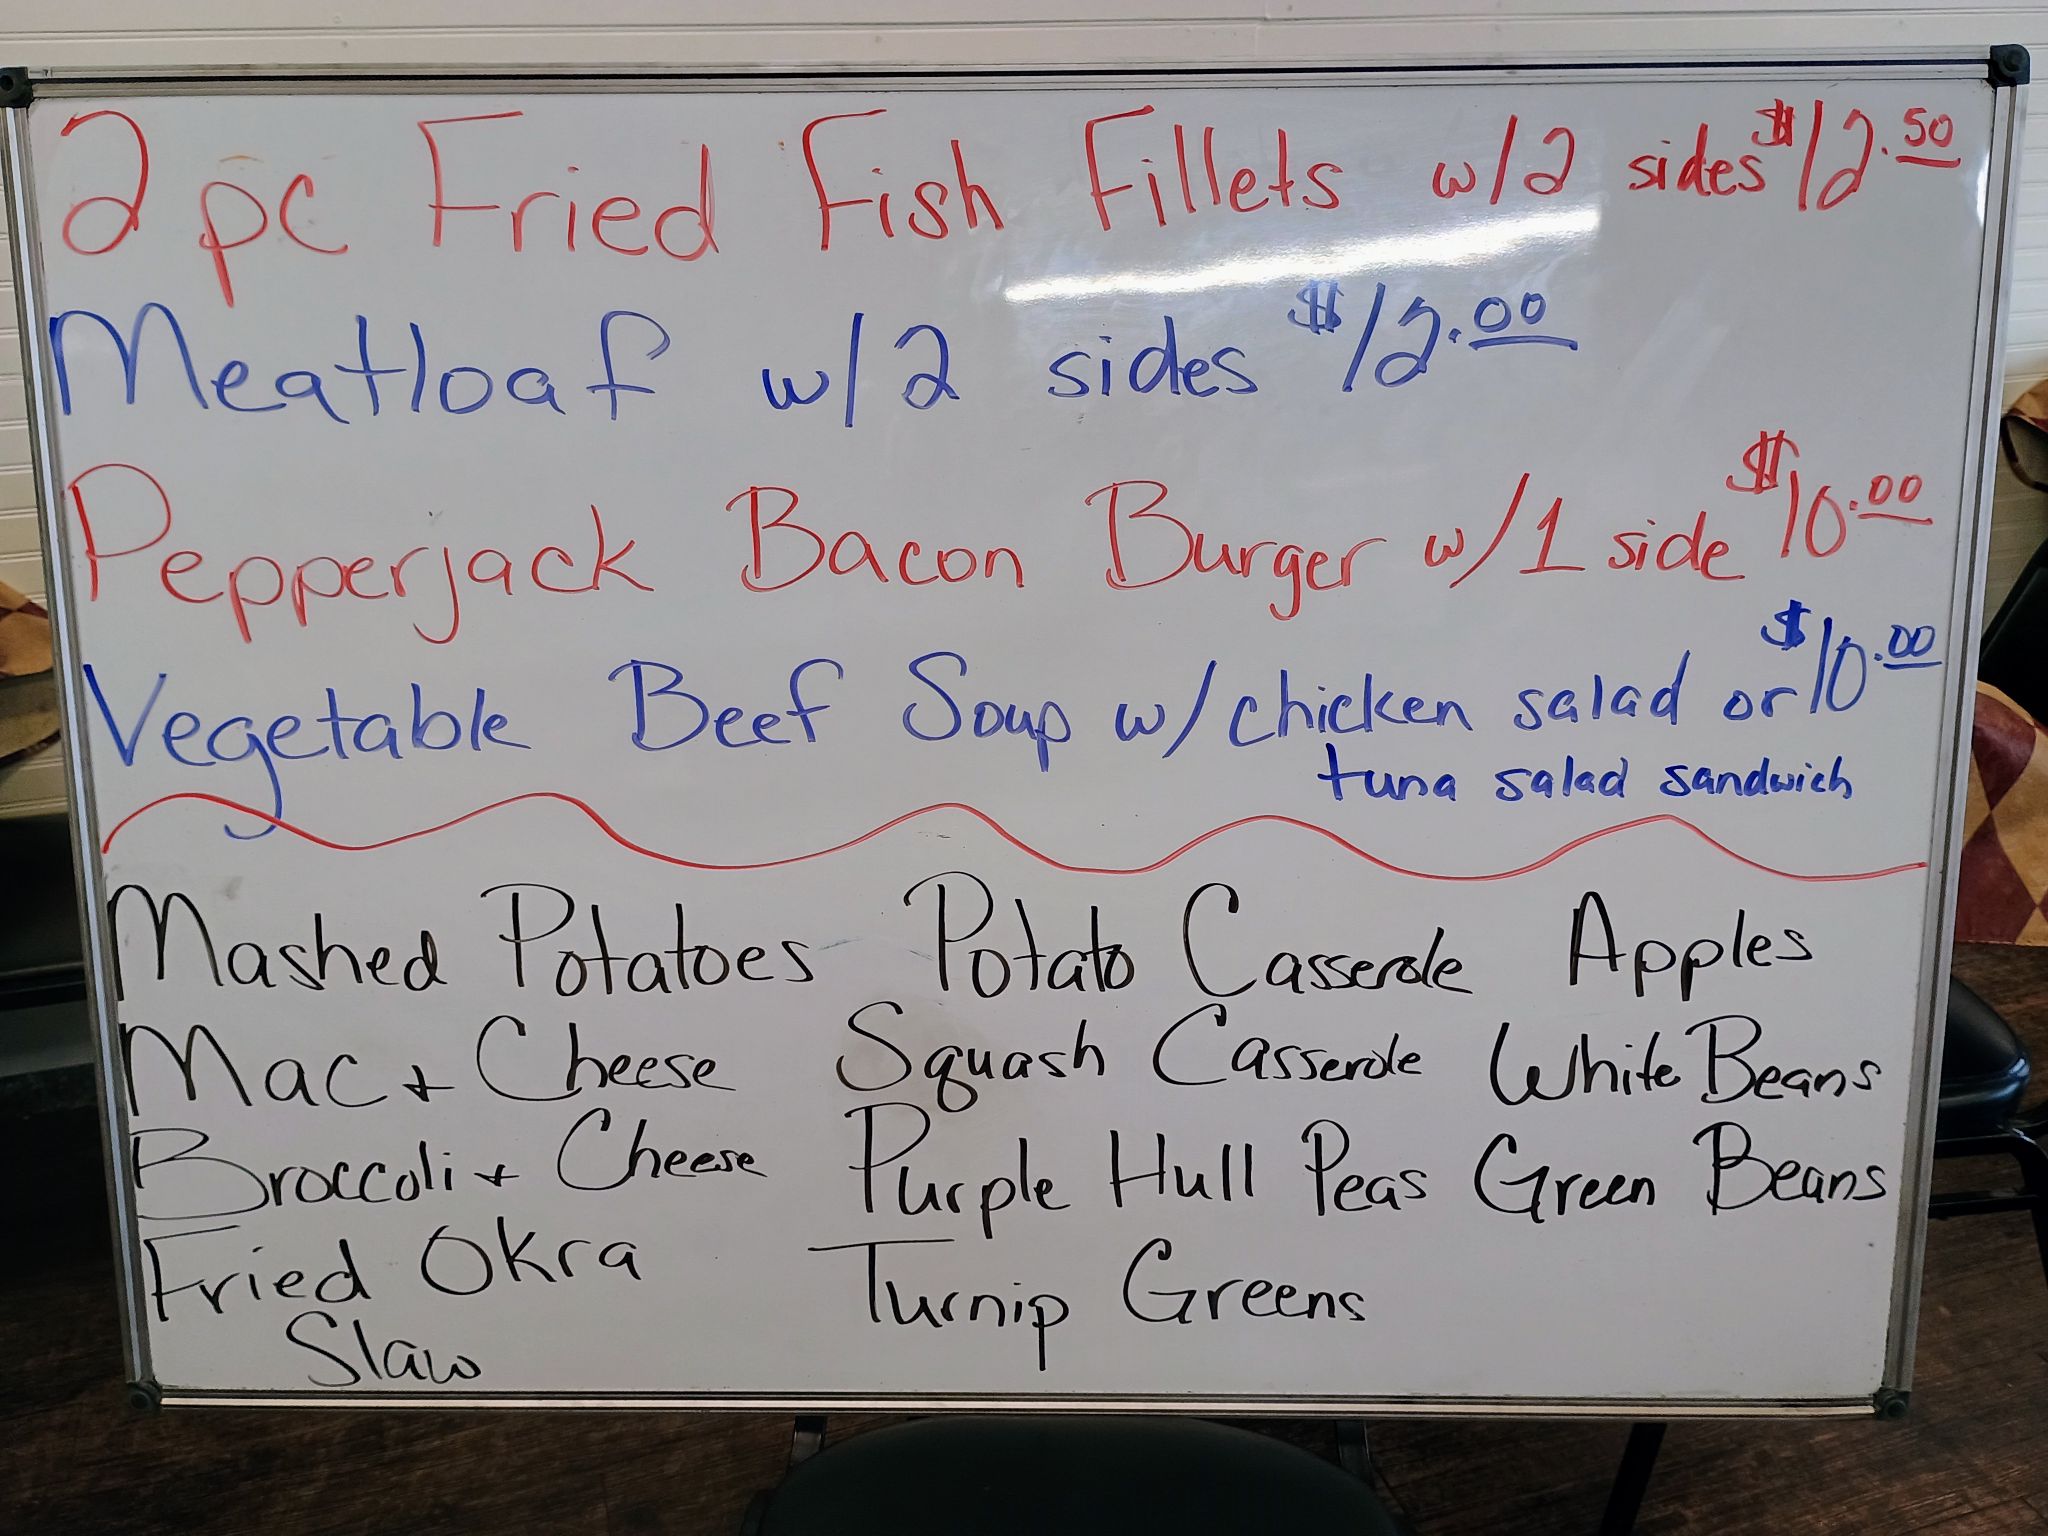 2 pc Fried Fish Fillets w/2 sides $12.50
Meatloaf w/2 sides $12.00
Pepperjack Bacon Burger w/1 side $10.00
Vegetable Beef Soup w/chicken salad or $10.00
tuna salad sandwich
Mashed Potatoes Potato Casserole Apples
Mac + Cheese Squash Casserole White Beans
Broccoli + Cheese Purple Hull Peas Green Beans
Fried Okra Turnip Greens
Slaw